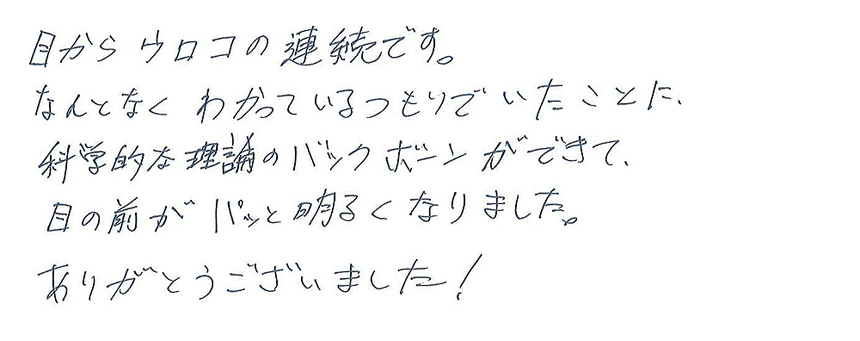 目からウロコの連続です。
なんとなくわかっているつもりでいたことに、
科学的な理論のバックボーンができて、
目の前がパッと明るくなりました。
ありがとうございました！